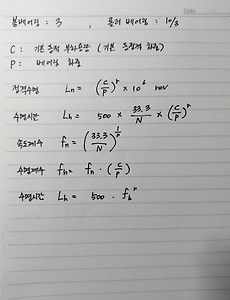 Date.
볼베어링 : 3 , 롤러 베어링 : 10/3
C : 기본 동적 부하용량 (기본 동정격 하중)
P : 베어링 하중
정격수명 Ln = (C/P)^r × 10^6 rev
수명시간 Lh = 500 × 33.3/N × (C/P)^r
속도계수 fn = (33.3/N)^1/r
수명계수 fh = fn · (C/P)
수명시간 Lh = 500 · fh^r